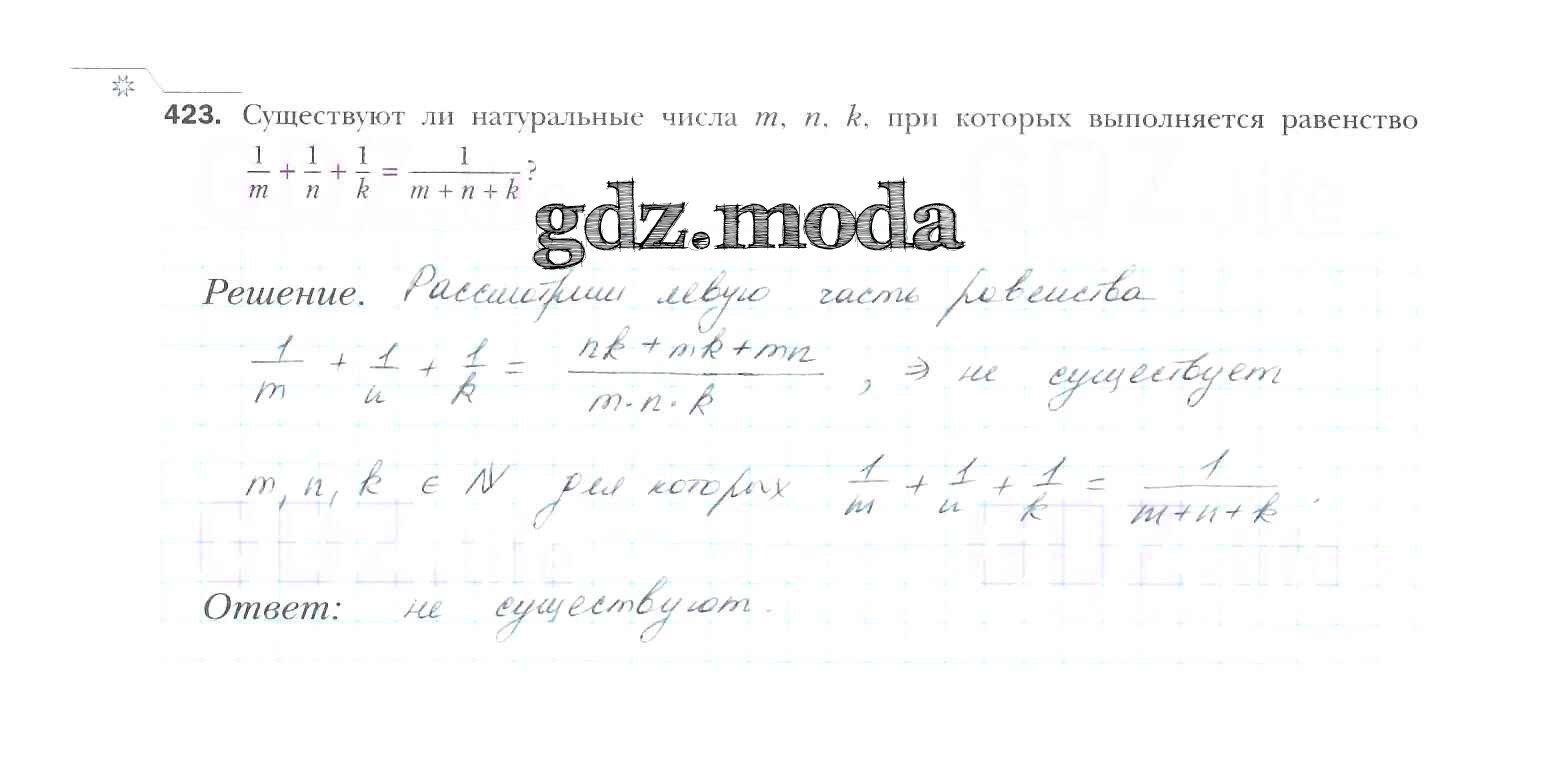 423. Существуют ли натуральные числа m, n, k, при которых выполняется равенство
1/m + 1/n + 1/k = 1/(m + n + k)?
gdz.moda
Решение. Рассмотрим левую часть равенства
1/m + 1/n + 1/k = (nk + mk + mn)/(m·n·k), ⇒ не существует
m, n, k ∈ N для которых 1/m + 1/n + 1/k = 1/(m+n+k).
Ответ: не существуют.